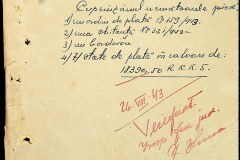 Cuprinzând următoarele piese:
1) un ordin de plată № 159/943.
2) una chitanță № 221/942-
3) un Bordirou
4) 7/ state de plată în valoare de:
18390,50 R.K.K.S.
26.VIII.43
Verificat